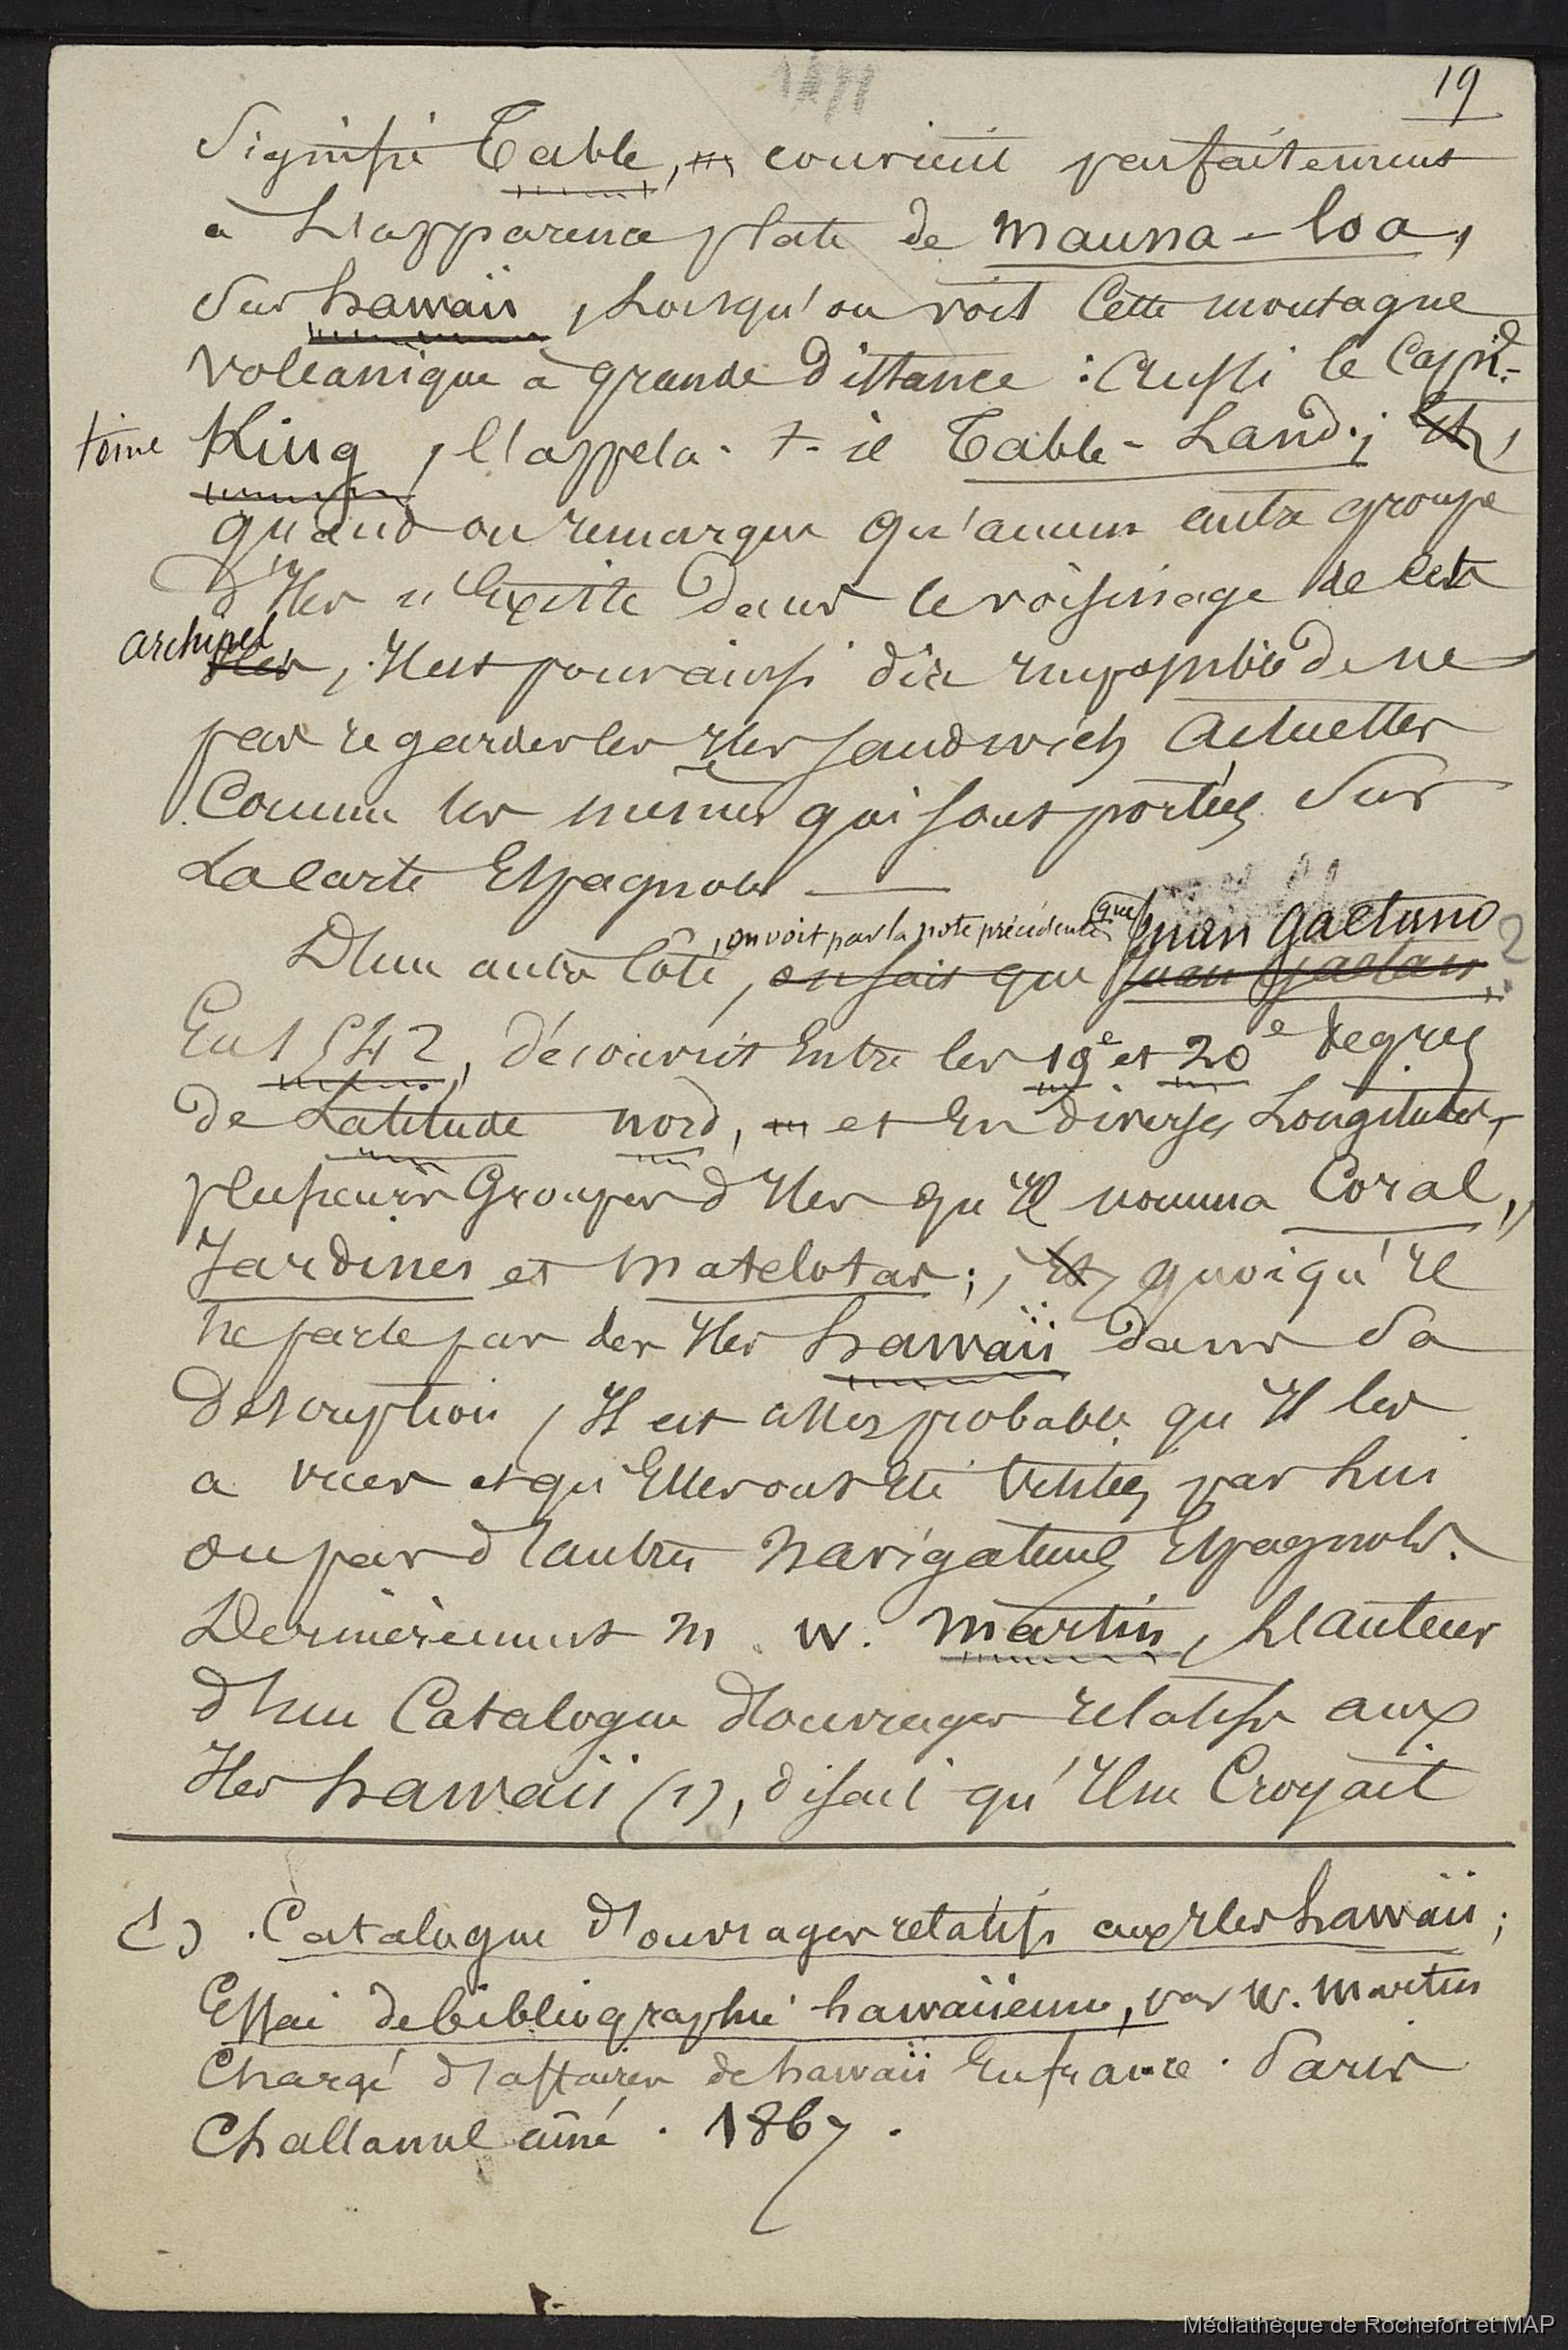 19
Signifie Table, convient parfaitement
à L'apparence plate de Mauna-loa,
Sur hawaïi, Lorsqu'on voit Cette montagne
Volcanique à grande Distance : Aussi le Capi-
taine King, l'appela-t-il Table-Land; Et,
quand on remarque qu'aucun autre groupe
d'Iles n'Existe Dans le voisinage de cet
archipel Iles, Il est pour ainsi dire impossible De ne
pas regarder les Iles Sandwich Actuelles
Comme les mêmes qui sont portées Sur
La Carte Espagnole
D'un autre Côté, on voit par la note précédente que Juan Gaetano
on sait que Juan Gaetan ?
En 1542, découvrit Entre les 19e et 20e degrés
De Latitude nord, et En diverses Longitudes,
plusieurs Groupes d'Iles qu'Il nomma Coral,
Jardines et Matelotas; Et quoiqu'Il
ne parle pas des Iles hawaïi Dans Sa
Description, Il est assez probable qu'Il les
a vues et qu'Elles ont Eté Visitées par Lui
ou par d'autres navigateurs Espagnols.
Dernièrement M. W. Martin, L'auteur
d'un Catalogue D'ouvrages relatifs aux
Iles hawaïi (1), disait qu'Il ne Croyait
(1). Catalogue d'ouvrages relatifs aux Iles hawaïi;
Essai de bibliographie hawaiienne, par W. Martin
Chargé d'affaires de hawaïi En france. Paris
Challamel aîné. 1867.
Médiathèque de Rochefort et MAP